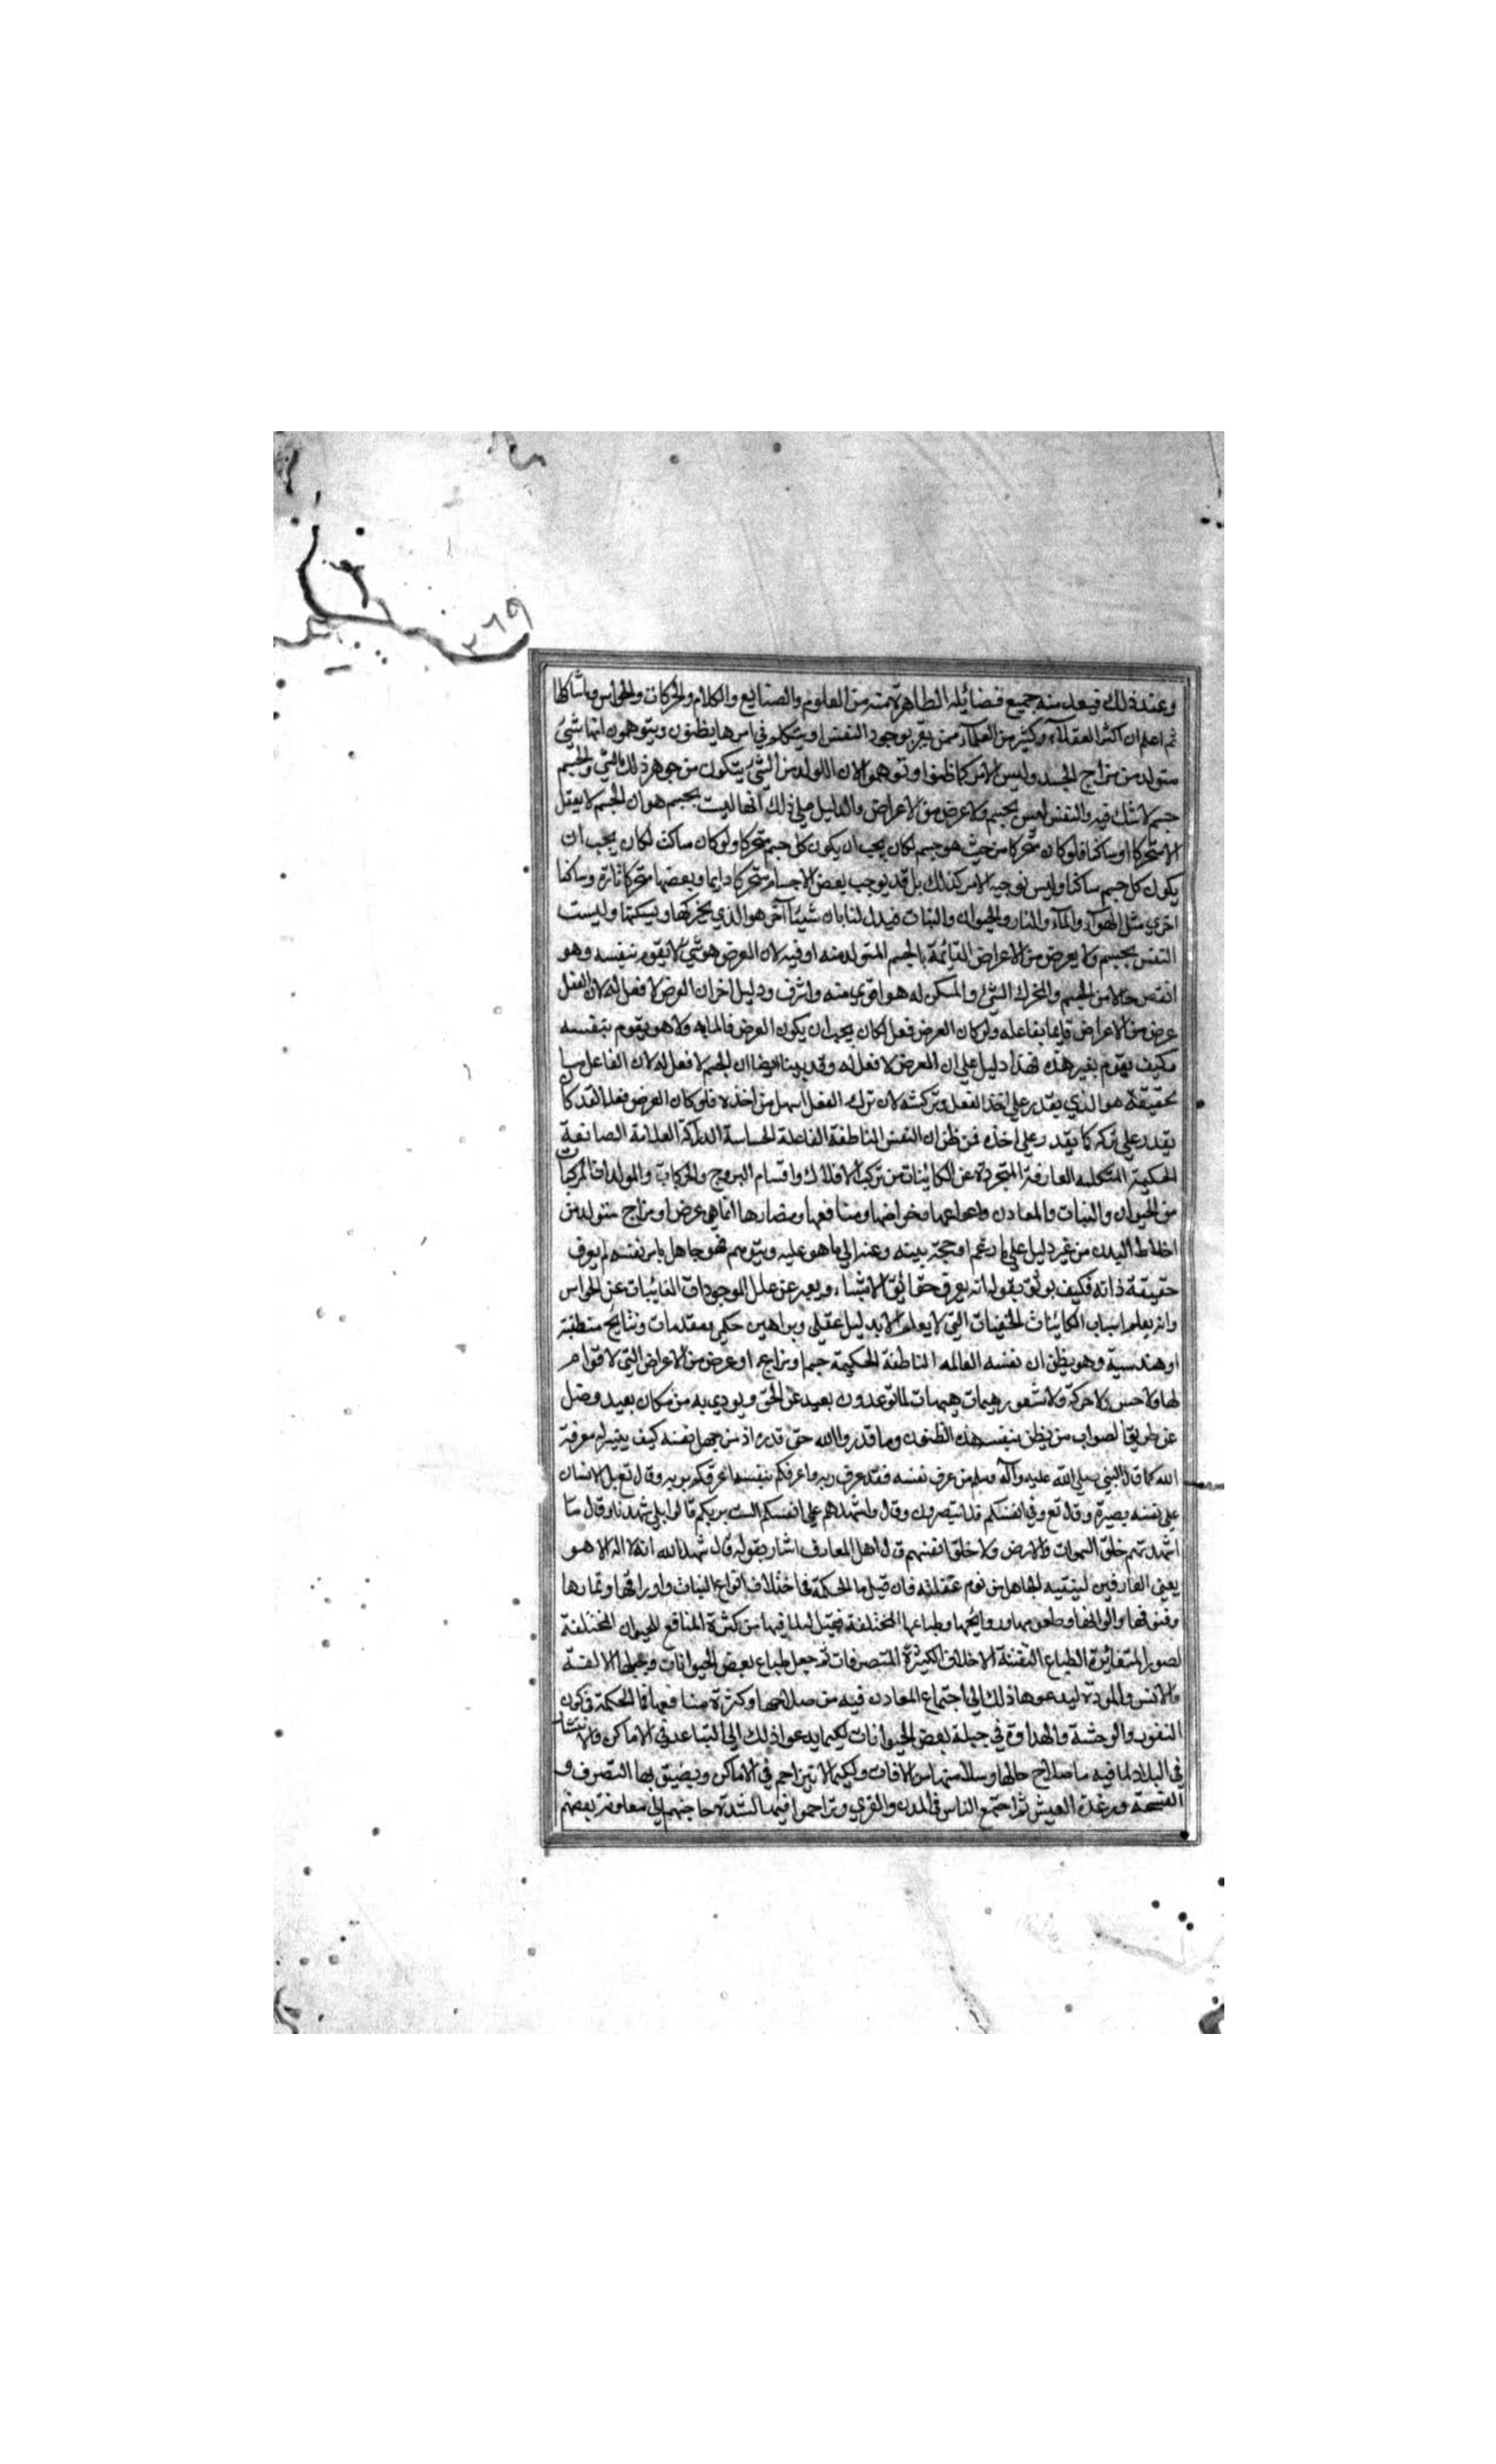 ٣٦٩
وعند ذلك فيعد منه جميع فضائله الظاهرة منه من العلوم والصنايع والكلام والحركات والحواس وما شاكلها
ثم اعلم ان اكثر العقلاء وكثير من العلماء ممن يقر بوجود النفس او يتكلم في امرها يظنون ويتوهمون انها شيئ
متولد من مزاج الجسد وليس الامر كما ظنوا وتوهموا لان المولد من الشئ يتكون من جوهر ذلك الشئ والجسم
جسم لا شك فيه والنفس ليس بجسم ولا عرض من الاعراض والدليل على ذلك انها ليست بجسم هو ان الجسم لا يعقل
الا متحركا او ساكنا فلو كان متحركا من حيث هو جسم لكان يجب ان يكون كل جسم متحركا ولو كان ساكن لكان يجب ان
يكون كل جسم ساكنا وليس نوجبه الامر كذلك بل قد يوجب بعض الاجسام متحركا دايما وبعضها متحركا تارة وساكنا
اخرى مثل الهوآء والمآء والنار والحيوان والنبات فيدل لنا بان شيئا آخر هو الذي يحركها ويسكنها وليست
النفس بجسم ولا بعرض من الاعراض القائمة بالجسم المتولد منه او فيه لان العرض هو شئ لا يقوم بنفسه وهو
انقص حالا من الجسم والمحرك الشئ والمسكن له هو اقوى منه واشرف ودليل اخر ان العرض لا فعل له لان الفعل
عرض من الاعراض قايما بفاعله ولو كان العرض فعل لكان يجب ان يكون العرض فالمابه ولا هو يقوم بنفسه
فكيف يقوم بغير هذه فهذا دليل على ان العرض لا فعل له وقد بينا ايضا ان الجسم لا فعل له لان الفاعل با
لحقيقة هو الذي يقدر على اخذ الفعل وتركه لان ترك الفعل اسهل من اخذه فلو كان العرض فعلا لقد كان
يقدر على تركه كما يقدر على اخذه فمن ظن ان النفس الناطقة الفاعلة الحساسة الدراكة العلامة الصانعة
الحكيمة المتكلمه العارفة المتجردة عن الكائنات من تركيب الافلاك واقسام البروج والحركات والمولدات المركبات
من الحيوان والنبات والمعادن وانواعها وخواصها ومنافعها ومضارها انما هي عرض او مزاج متولد من
اخلاط البدن من غير دليل على ما زعم او حجة بينه وعنه الى ما هو عليه ويتوهم فهو جاهل بامر نفسه لم يعرف
حقيقة ذاته فكيف يوثق بقوله انه يعرف حقائق الاشياء ويعبر عن علل الموجودات الغائبات عن الحواس
وانه يعلم اسباب الكائنات الخفيات التي لا يعلم الا بدليل عقلي وبراهين حكمي بمقدمات ونتايج منطقية
او هندسية وهو يظن ان نفسه العالمه الناطقة الحكيمة جسم او مزاج او عرض من الاعراض التي لا قوام
لها ولا حس ولا حركة ولا شعور هيهات هيهات لما توعدون بعيد عن الحق وينودي به من مكان بعيد وضل
عن طريق الصواب من يظن بنفسه هذه الظنون وما قدروا الله حق قدره اذ من جهل نفسه كيف يتيسر له معرفة
الله كما قال النبي صلى الله عليه وآله وسلم من عرف نفسه فقد عرف ربه واعرفكم بنفسه اعرفكم بربه وقال تع بل الانسان
على نفسه بصيرة وقال تع وفي انفسكم افلا تبصرون وقال واشهدهم على انفسهم الست بربكم قالوا بلى شهدنا وقال ما
اشهدتهم خلق السموات والارض ولا خلق انفسهم قال اهل المعارف اشار بقوله قال شهد الله انه لا اله الا هو
يعني العارفين لينتبه الجاهل من نوم غفلته فان قيل ما الحكمة في اختلاف انواع النبات واوراقها وثمارها
وفنونها والوانها وطعومها وروايحها وطباعها المختلفة فقيل لما فيها من كثرة المنافع للحيوان المختلفة
لصور المتغائرة الطباع المفننة الاخلاق الكثيرة المتصرفات ثم جعل طباع بعض الحيوانات وجبلها الالفة
والانس والمودة ليدعوها ذلك الى اجتماع المعادن فيه من صلاحها وكثرة منافعها فما الحكمة في كون
النفور والوحشة والعداوة في جبلة بعض الحيوانات لكيما يدعوا ذلك الى التباعد في الاماكن والانتشار
في البلاد لما فيه ما صلاح حالها وسلامتها من الافات ولكيما لا تتزاحم في الاماكن ويضيق بها التصرف و
الفسحة ورغدة العيش ثم اجتمع الناس في المدن والقرى وتزاحموا فيها لشدة حاجتهم الى معاونة بعضهم